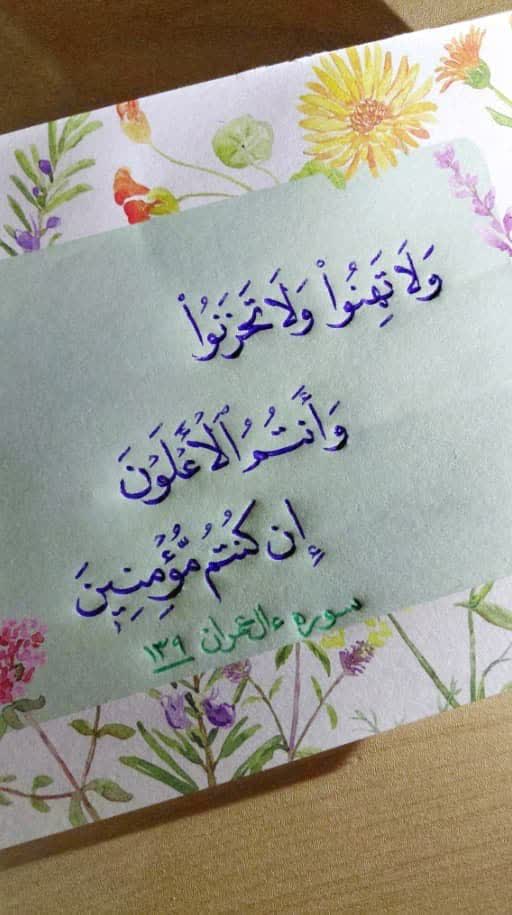 وَلَا تَهِنُوا۟ وَلَا تَحْزَنُوا۟
وَأَنتُمُ ٱلْأَعْلَوْنَ
إِن كُنتُم مُّؤْمِنِينَ
سورة ءال عمران ١٣٩